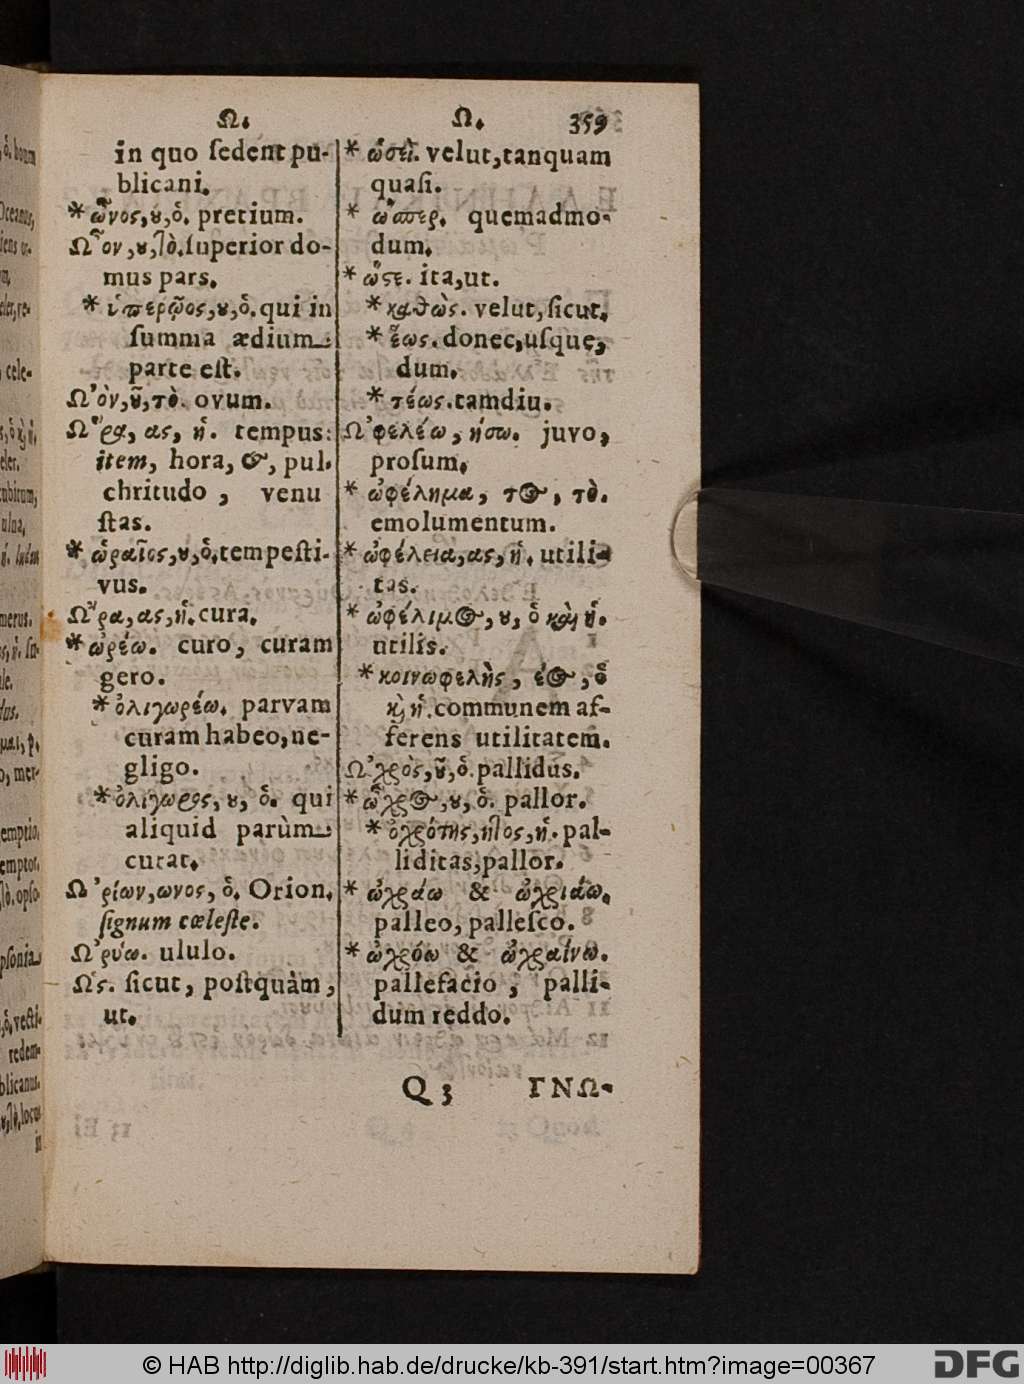 Ω.
Ω. 359
in quo ſedent pu-
blicani.
* ὦνος,ȣ,ὁ. pretium.
Ω῏ον,ȣ,τὸ. ſuperior do-
mus pars.
* ὑπερῷος,ȣ,ὁ. qui in
ſumma ædium
parte eſt.
Ω᾿ὸν,ȣ͂,τὸ. ovum.
Ω῞ρα, ας, ἡ. tempus:
item, hora, &, pul-
chritudo, venu
ſtas.
* ὡραῖος,ȣ,ὁ. tempeſti-
vus.
Ω῎ρα,ας,ἡ. cura.
* ὠρέω. curo, curam
gero.
* ὀλιγωρέω. parvam
curam habeo, ne-
gligo.
* ὀλίγωρος, ȣ, ὁ. qui
aliquid parùm
curat.
Ω᾿ρίων,ωνος, ὁ. Orion.
ſignum cœleſte.
Ω᾿ρύω. ululo.
Ω῾ς. ſicut, poſtquàm,
ut.
* ὡσεὶ. velut, tanquam
quaſi.
* ὥσπερ. quemadmo-
dum.
* ὥςε. ita, ut.
* καθὼς. velut, ſicut.
* ἕως. donec, uſque,
dum.
* τέως. tamdiu.
Ω᾿φελέω, ήσω. juvo,
proſum.
* ὠφέλημα, τος, τὸ.
emolumentum.
* ὠφέλεια,ας, ἡ. utili-
tas.
* ὠφέλιμος, ȣ, ὁ καὶ ἡ.
utilis.
* κοινωφελὴς, έος, ὁ
κὶ ἡ. communem af-
ferens utilitatem.
Ω᾿χρὸς,ȣ͂,ὁ. pallidus.
* ὦχρος,ȣ,ὁ. pallor.
* ὀχρότης,ητος,ἡ. pal-
liditas, pallor.
* ὠχράω & ὠχριάω.
palleo, palleſco.
* ὠχρόω & ὠχραίνω.
pallefacio, palli-
dum reddo.
Q 3 ΓΝΩ-
© HAB http://diglib.hab.de/drucke/kb-391/start.htm?image=00367
DFG